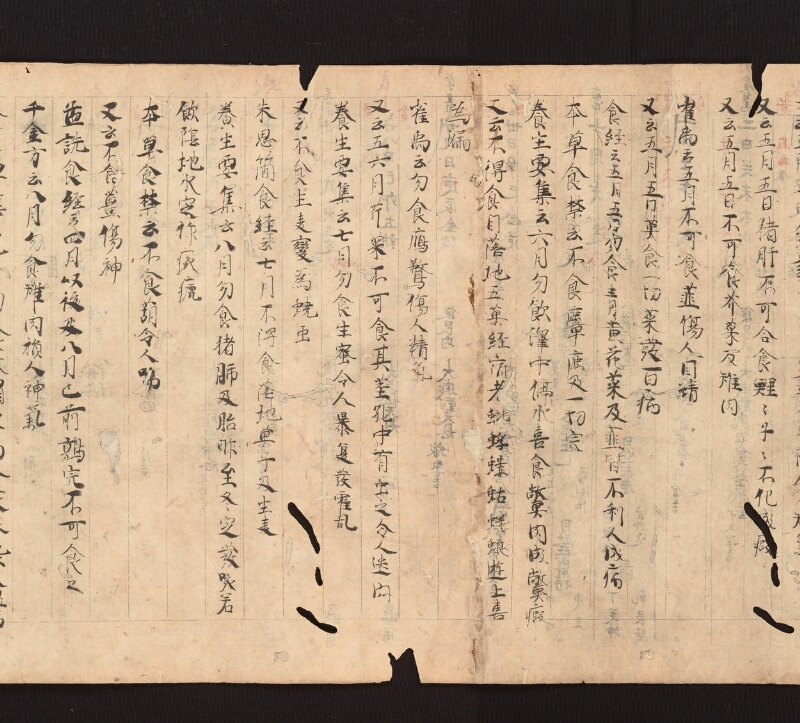 又云五月五日猪肝不可合食鯉〻子〻不化成瘕
又云五月五日不可食芥菜及雉肉
崔禹云五月不可食韮傷人目精
又云五月五日莫食一切菜發百病
食經云五月五日勿食青黄花菜及韮皆不利人成病
本草食禁云不食麞鹿及一切宍
養生要集云六月勿飲澤中停水喜食鼈肉成鼈瘕
又云不得食自落地五菓經宿者蚍蜉螻蛄蜣蜋遊上喜
為漏
崔禹云勿食鴈鶩傷人精氣
又云五六月芹菜不可食其茎孔中有虫之令人迷悶
養生要集云七月勿食生蜜令人暴下發霍乱
又云不食生麦變為蟯虫
朱思簡食經云七月不得食落地菓子及生麦
養生要集云八月勿食猪肺及胎胙至冬定發咳若
飲陰地水定作咳瘧
本草食禁云不食葫令人喘
又云不食薑傷神
孟詵食經云四月以後及八月已前鶉宍不可食之
千金方云八月勿食雉肉損人神氣